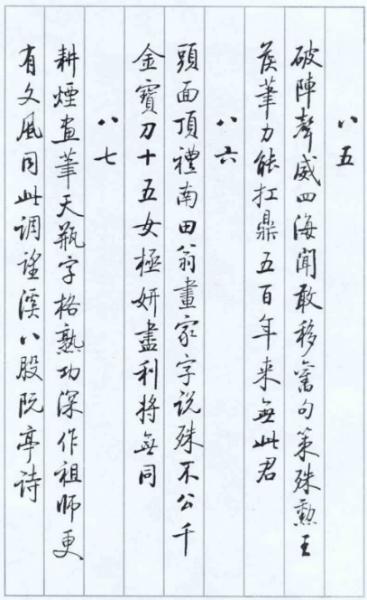 八五
破陣聲威四海聞敢移舊句策殊勲王
侯筆力能扛鼎五百年来無此君
八六
頭面頂禮南田翁畫家字説殊不公千
金寶刀十五女極妍盡利將無同
八七
耕煙畫筆天瓶字格熟功深作祖師更
有文風同此调望溪八股阮亭诗